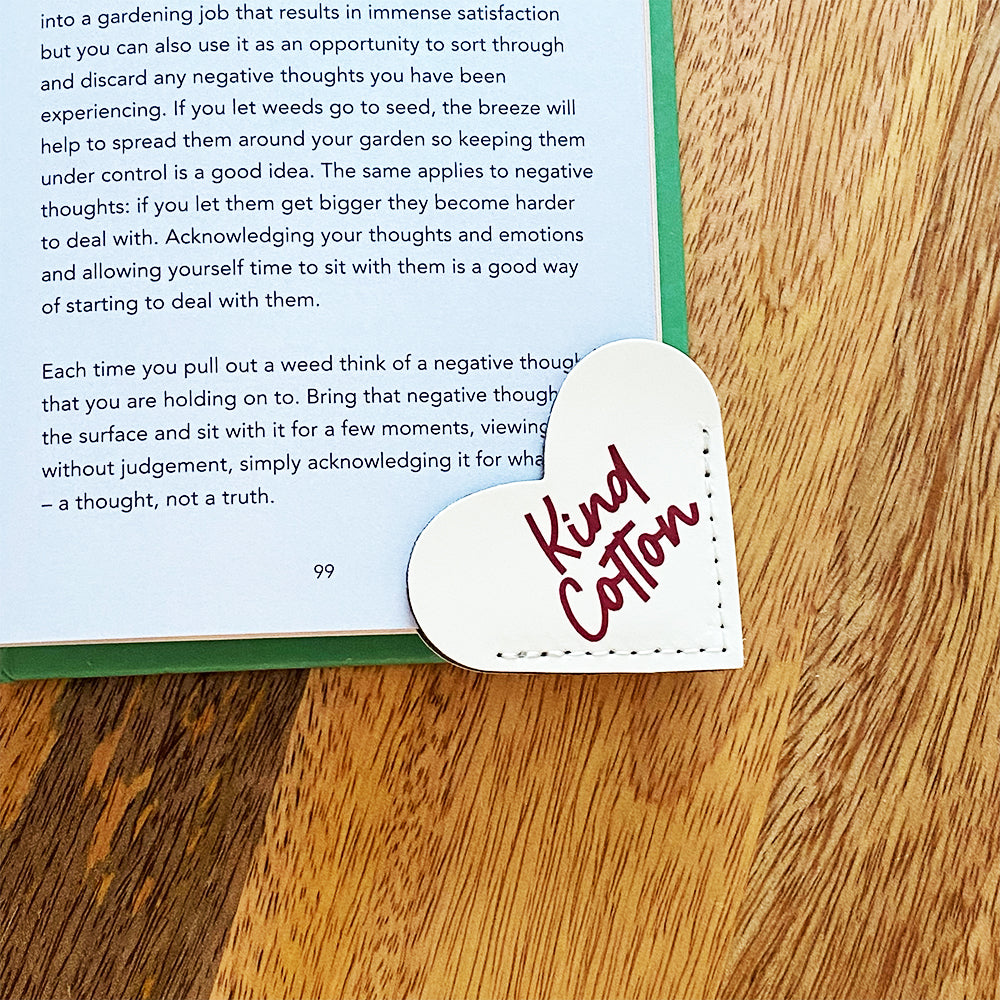 into a gardening job that results in immense satisfaction
but you can also use it as an opportunity to sort through
and discard any negative thoughts you have been
experiencing. If you let weeds go to seed, the breeze will
help to spread them around your garden so keeping them
under control is a good idea. The same applies to negative
thoughts: if you let them get bigger they become harder
to deal with. Acknowledging your thoughts and emotions
and allowing yourself time to sit with them is a good way
of starting to deal with them.
Each time you pull out a weed think of a negative
that you are holding on to. Bring that negative
the surface and sit with it for a few moments, viewing
without judgement, simply acknowledging it for
– a thought, not a truth.
99
Kind
Cotton